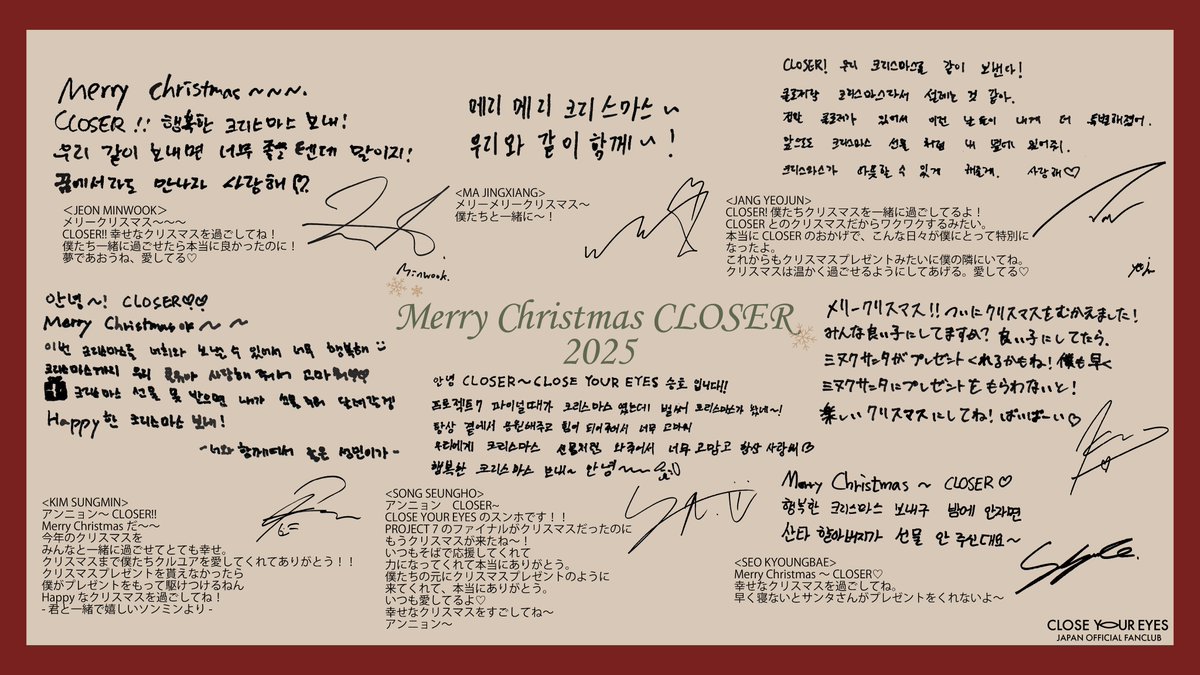 Merry Christmas~~~.
CLOSER!! 행복한 크리스마스 보내!
우리 같이 보내면 너무 좋을텐데 말이지!
꿈에서라도 만나자 사랑해♡
<JEON MINWOOK>
メリークリスマス～～～
CLOSER!! 幸せなクリスマスを過ごしてね！
僕たち一緒に過ごせたら本当に良かったのに！
夢であおうね、愛してる♡
Minwook.
메리 메리 크리스마스~
우리와 같이 함께~!
<MA JINGXIANG>
メリーメリークリスマス～
僕たちと一緒に～！
CLOSER! 우리 크리스마스를 같이 보낸다!
클로저랑 크리스마스라서 설레는 것 같아.
정말 클로저가 있어서 이런 날들이 내게 더 특별해졌어.
앞으로도 크리스마스 선물처럼 내 옆에 있어줘.
크리스마스가 따뜻할 수 있게 해줄게. 사랑해♡
<JANG YEOJUN>
CLOSER! 僕たちクリスマスを一緒に過ごしてるよ！
CLOSER とのクリスマスだからワクワクするみたい。
本当に CLOSER のおかげで、こんな日々が僕にとって特別に
なったよ。
これからもクリスマスプレゼントみたいに僕の隣にいてね。
クリスマスは温かく過ごせるようにしてあげる。愛してる♡
Merry Christmas CLOSER
2025
안녕~! CLOSER♡♡
Merry Christmas야~ ~
이번 크리스마스를 너희와 보낼 수 있어서 너무 행복해
크리스마스까지 우리 클유아 사랑해줘서 고마워♡♡
크리스마스 선물 못 받으면 내가 선물 들고 달려갈게
Happy한 크리스마스 보내!
-너와 함께여서 좋은 성민이가-
<KIM SUNGMIN>
アンニョン～ CLOSER!!
Merry Christmas だ～～
今年のクリスマスを
みんなと一緒に過ごせてとても幸せ。
クリスマスまで僕たちクルユアを愛してくれてありがとう！！
クリスマスプレゼントを貰えなかったら
僕がプレゼントをもって駆けつけるねん
Happy なクリスマスを過ごしてね！
- 君と一緒で嬉しいソンミンより -
안녕 CLOSER~ CLOSE YOUR EYES 승호입니다!!
프로젝트7 파이널때가 크리스마스였는데 벌써 크리스마스가 왔네~!
항상 곁에서 응원해주고 힘이 되어줘서 너무 고마워
우리에게 크리스마스 선물처럼 와주어서 너무 고맙고 항상 사랑해♡
행복한 크리스마스 보내~ 안녕~~
<SONG SEUNGHO>
アンニョン　CLOSER~
CLOSE YOUR EYES のスンホです！！
PROJECT 7 のファイナルがクリスマスだったのに
もうクリスマスが来たね～！
いつもそばで応援してくれて
力になってくれて本当にありがとう。
僕たちの元にクリスマスプレゼントのように
来てくれて、本当にありがとう。
いつも愛してるよ♡
幸せなクリスマスをすごしてね～
アンニョン～
メリークリスマス!! ついにクリスマスをむかえました!
みんな良い子にしてますか? 良い子にしてたら、
ミヌクサンタがプレゼントくれるかもね! 僕も早く
ミヌクサンタにプレゼントをもらわないと!
楽しいクリスマスにしてね! ばいばーい♡
Merry Christmas ~ CLOSER♡
행복한 크리스마스 보내구 밤에 안자면
산타 할아버지가 선물 안 주신대요~
<SEO KYOUNGBAE>
Merry Christmas ～ CLOSER♡
幸せなクリスマスを過ごしてね。
早く寝ないとサンタさんがプレゼントをくれないよ～
CLOSE YOUR EYES
JAPAN OFFICIAL FANCLUB